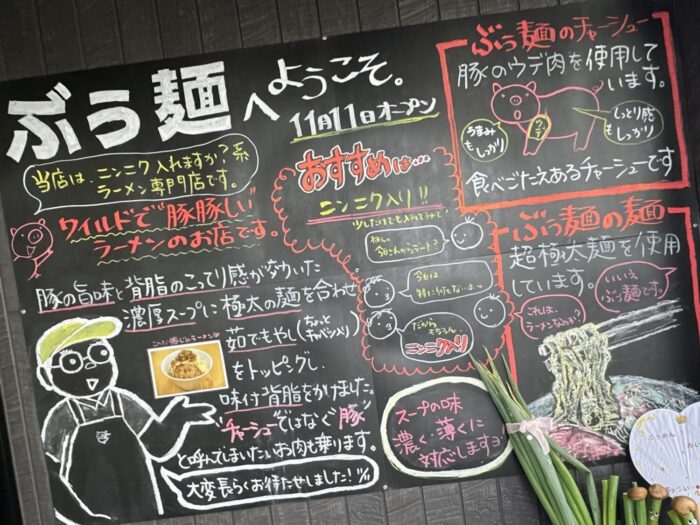 ぶぅ麺へようこそ。
11月11日オープン
当店は ニンニク入れますか？系
ラーメン専門店です。
ワイルドで"豚豚しい"
ラーメンのお店です。
豚の旨味と背脂のこってり感が効いた
濃厚スープに極太の麺を合わせ
茹でもやし(ちょっとキャベツ入り)
をトッピングし、
味付け背脂をかけました。
"チャーシュー"ではなく"豚"
と呼んでしまいたいお肉も乗ります。
大変長らくお待たせしました！
おすすめは…
ニンニク入り!!
少しだけでも入れてみて！
ねぇ、
今日これからデート？
今日は
特に何もないよ
だから
もちろん…
ニンニク入り
スープの味
濃く・薄くに
対応します
ぶぅ麺のチャーシュー
豚のウデ肉を使用して
います。
うまみ
も
しっかり
ウデ
しっとり感
も
しっかり
食べごたえあるチャーシューです
ぶぅ麺の麺
超極太麺を使用
しています。
これは、
ラーメンなのか？
いいえ
ぶぅ麺です。